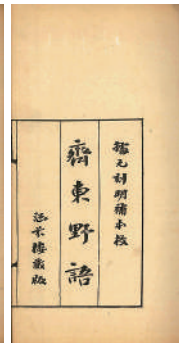 據元刻明補本校
齊東野語
涵芬樓藏版